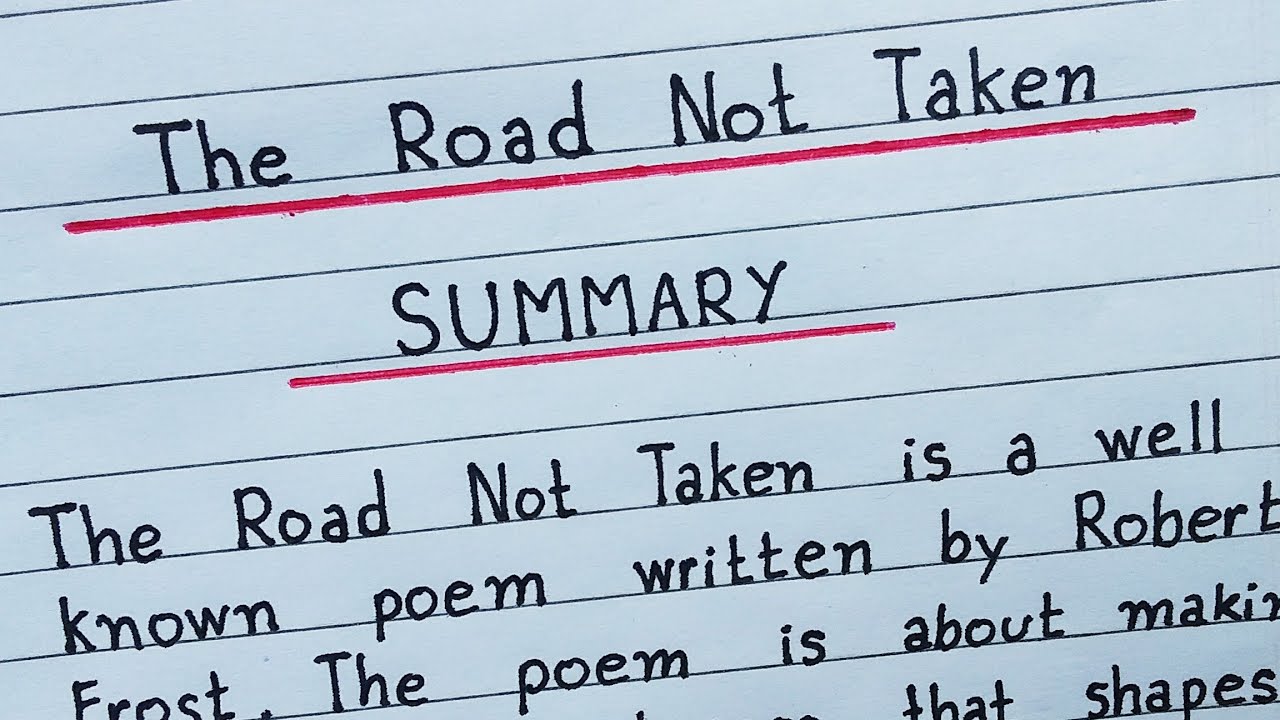 The Road Not Taken
SUMMARY
The Road Not Taken is a well
known poem written by Robert
Frost. The poem is about
that shapes